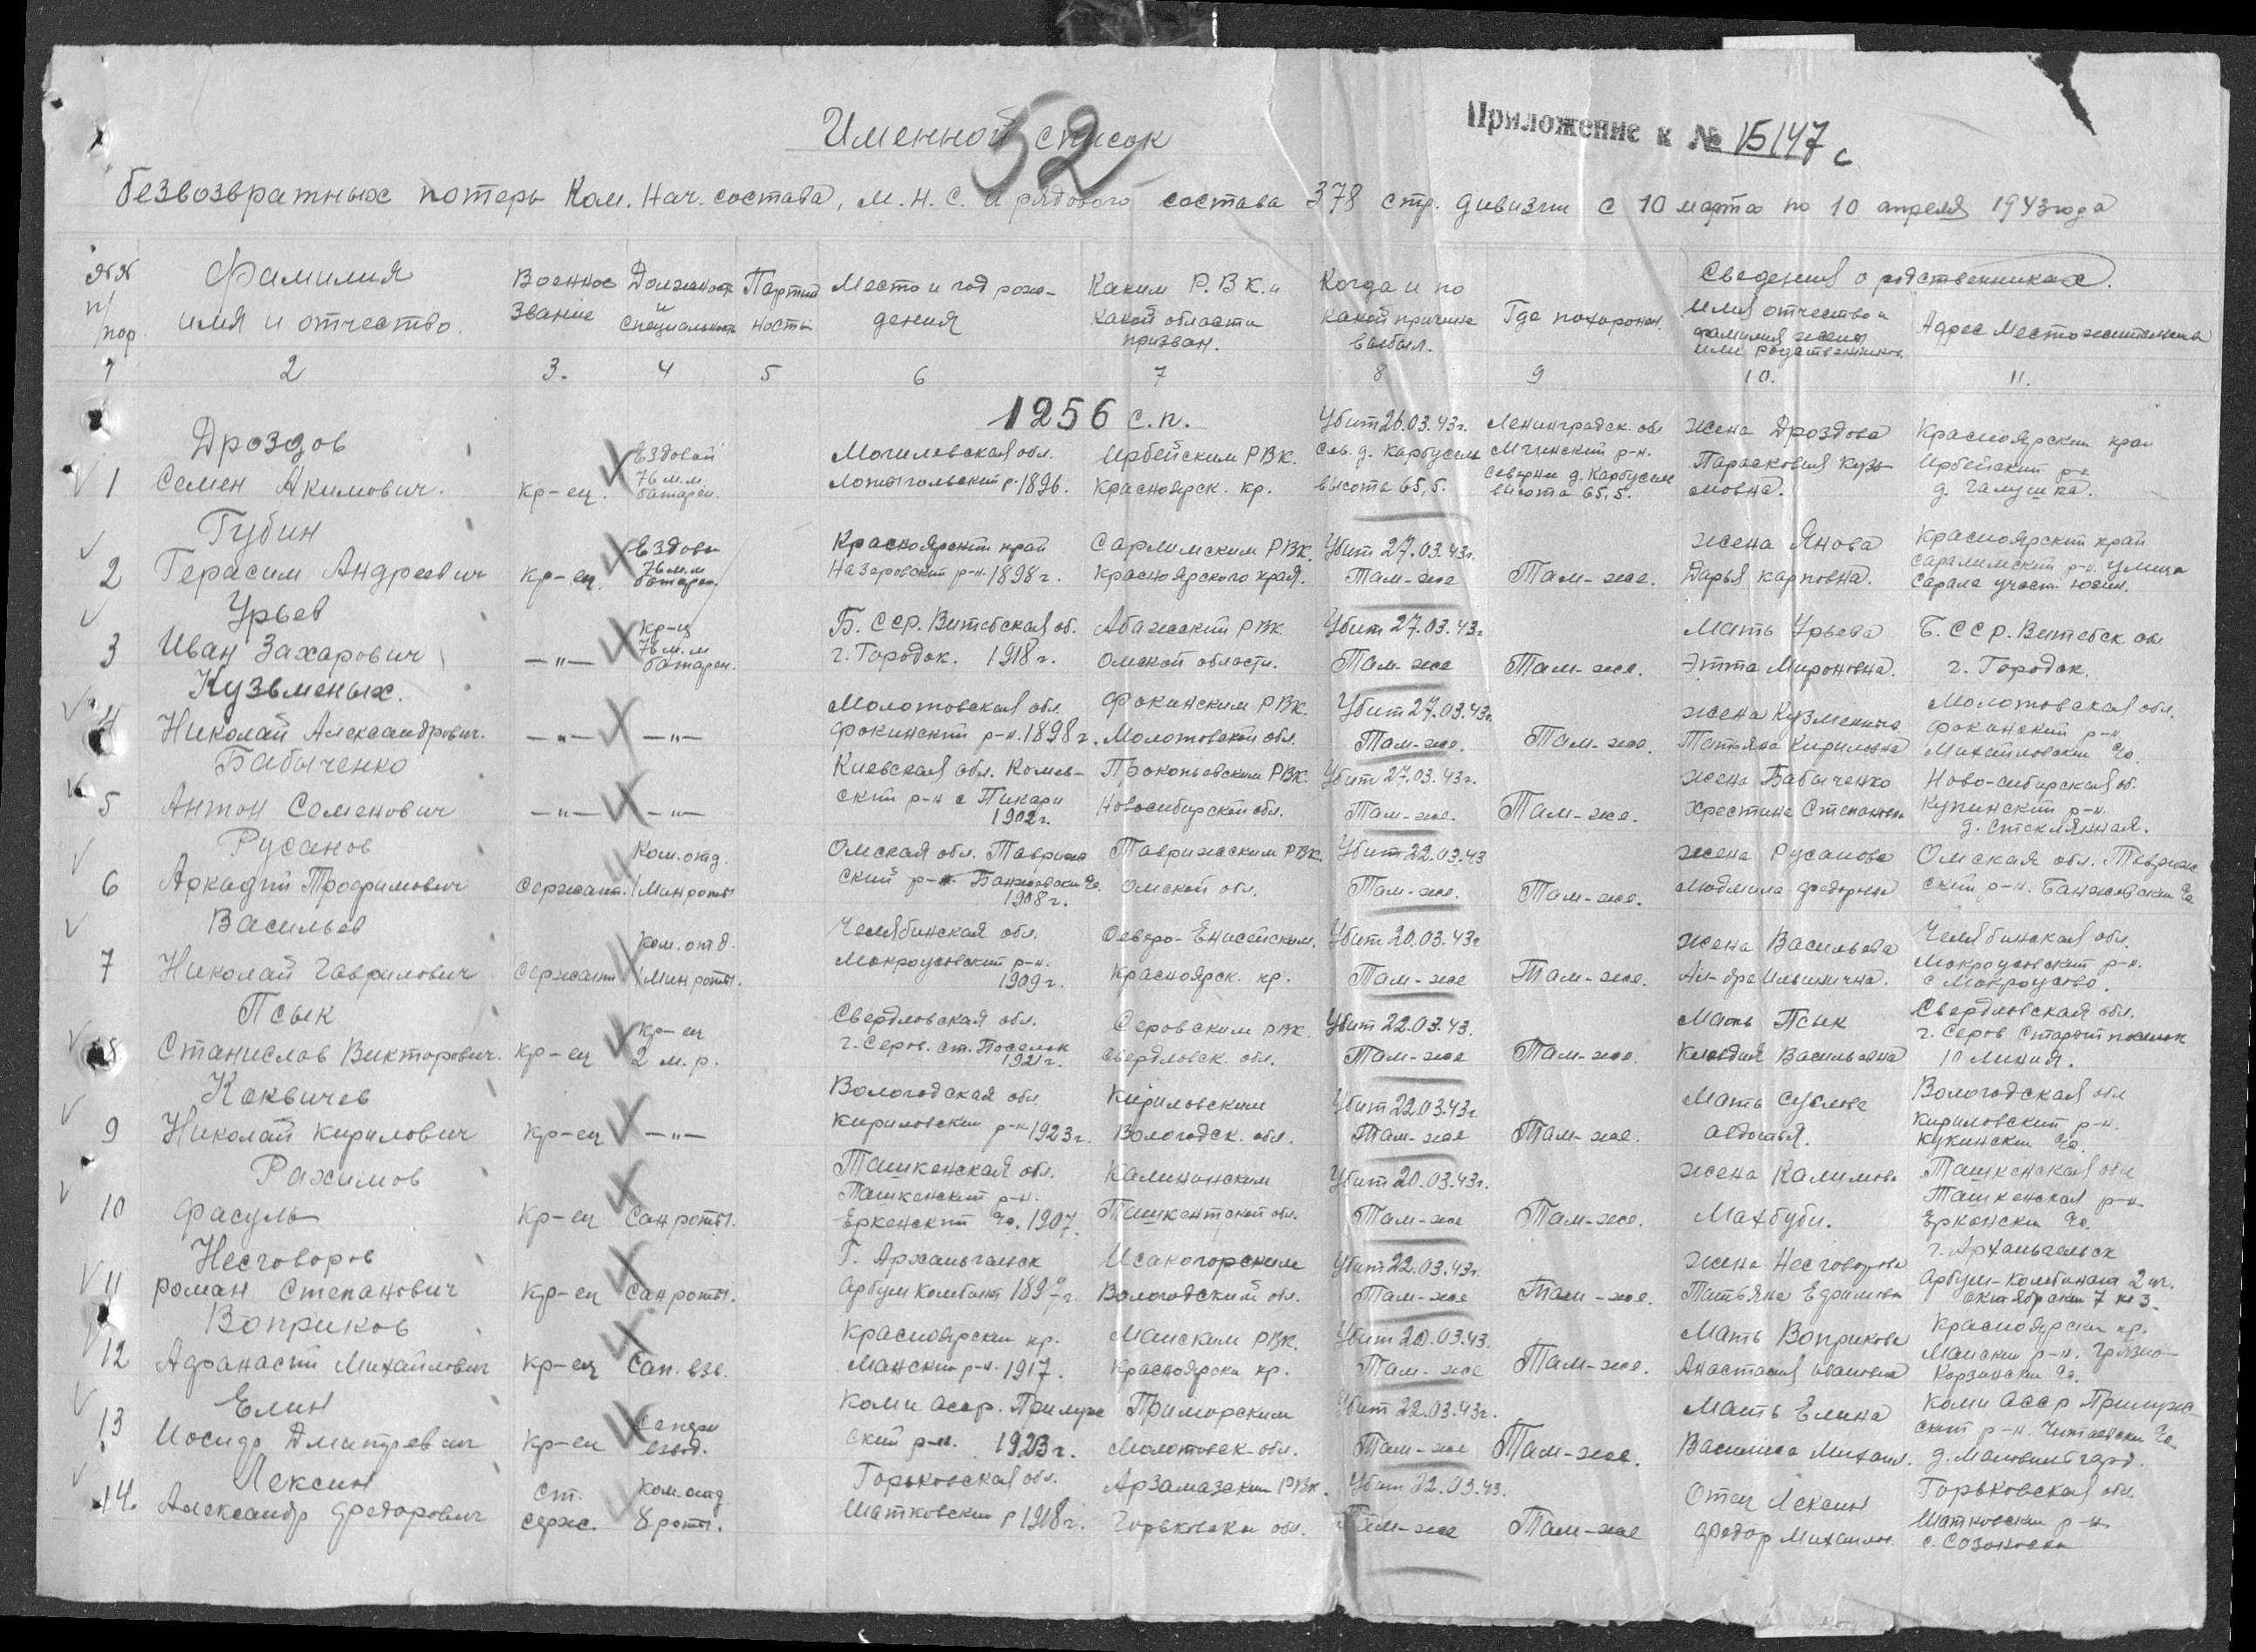 Именной список
52
Приложение к № 15147 с
безвозвратных потерь Ком. Нач. состава, м. н. с. и рядового состава 378 стр. дивизии с 10 марта по 10 апреля 1943 года
№№ п/пор.
Фамилия имя и отчество.
Военное звание
Должность и специальность
Партийность
Место и год рождения
Каким Р.В.К. и какой области призван.
Когда и по какой причине выбыл.
Где похоронен.
Сведения о родственниках.
Имя отчество и фамилия жены или родственников
Адрес Местожительства
1 2 3. 4 5 6 7 8 9 10. 11.
1256 с.п.
Дроздов
1 Семен Акимович. Кр-ец. Ездовой 76 м.м. батареи. Могилевская обл. 1896. Ирбейским РВК. Красноярск. кр. Убит 26.03.43г. сев. д. Карбусель высота 65,5. Ленинградск. обл Мгинский р-н. Севернее д. Карбусель высота 65,5. жена Дроздова Парасковия Кузьмовна. Красноярский край Ирбейский р-н д. Галушка.
Губин
2 Герасим Андреевич Кр-ец. Ездовы 76 м.м батареи. Красноярский край Назаровский р-н. 1898 г. Саралимским РВК. Красноярского края. Убит 27.03.43г. Там-же Там-же. жена Янова Дарья карповна. Красноярский край саралимский р-н. улица Сарала участ.
Урьев
3 Иван Захарович —"— Кр-ц 76 м.м батареи. Б. ССР. Витебская об. г. Городок. 1918 г. Абажский РВК Омской области. Убит 27.03.43г Там-же Там-же. Мать Урьева Этта Мироновна. Б. ССР. Витебск. обл г. Городок.
Кузьменых.
4 Николай Александрович. —"— —"— Молотовская обл. фокинский р-н. 1898 г. Фокинским РВК. Молотовской обл. Убит 27.03.43г. Там-же. Там-же. жена Кузменыха Татьяна Кириловна Молотовская обл. фокинский р-н. Михайловский
Бабыченко
5 Антон Семенович —"— —"— Киевская обл. р-н с Пикари 1902г. Прокопьевским РВК. Новосибирской обл. Убит 27.03.43г. Там-же. Там-же. жена Бабыченко Хрестина Степановна Ново-сибирская об. Купинский р-н. д. стеклянная.
Русанов
6 Аркадий Трофимович Сержант. Ком. отд. Минроты Омская обл. Тавриж ский р-н 1908г. Таврижским РВК. Омской обл. Убит 22.03.43 Там-же. Там-же. жена Русанова Людмила федоровна Омская обл. Тавриж ский р-н.
Васильев
7 Николай Гаврилович Сержант Ком. отд. Минроты. Челябинская обл. Мокроусовский р-н. 1909г. Северо-Енисейским. Красноярск. кр. Убит 20.03.43г Там-же Там-же. жена Васильева Ильинична. Челябинская обл. Мокроусовский р-н. с Мокроусово.
Псык
8 Станислав Викторович. Кр-ец Кр-ец 2 м. р. Свердловская обл. г. Серов. ст. Поселок 1921г. Серовским РВК. Свердловск. обл. Убит 22.03.43. Там-же Там-же. Мать Псык Клавдия Васильевна Свердловская обл. г. Серов Старый поселок 10 линия.
Каквичев
9 Николай Кирилович Кр-ец —"— Вологодская обл Кириловский р-н 1923г. Кириловским Вологодск. обл. Убит 22.03.43г. Там-же Там-же. Мать Суслова авдотья. Вологодская обл Кириловский р-н. Кукинский
Рахимов
10 Фасуль Кр-ец Санроты. Ташкенская обл. Ташкенский р-н. Еркенский 1907. Калининским Ташкентской обл. Убит 20.03.43г. Там-же Там-же. жена Калимова Махбуби. Ташкенская обл Ташкенская р-н
Несговоров
11 Роман Степанович Кр-ец Санроты. Г. Архангельск Арбум Комбинат Исакогорским Вологодский обл. Убит 22.03.43г. Там-же Там-же. жена Несговорова Татьяна Ефимовна г. Архангельск Арбум-Комбинат
Воприков
12 Афанасий Михайлович Кр-ец Сап. взв. Красноярский кр. Манский р-н. 1917. Манским РВК. Красноярск кр. Убит 20.03.43. Там-же Там-же. Мать Воприкова Анастасия Ивановна Красноярский кр. Манский р-н.
Елин
13 Иосиф Дмитревич Кр-ец взвод. Коми асср. Прилузс ский р-н. 1923г. Приморским Молотовск обл. Убит 22.03.43г. Там-же Там-же. Мать Елина Василиса Михаил. Коми асср Прилузс ский р-н. Читаевский
Лексин
14. Александр федорович ст. серж. Ком. отд 8 роты. Горьковская обл. Шатковский р 1918г. Арзамаским РВК. Горьковской обл. Убит 22.03.43. Там-же Там-же Отец Лексин Федор Михаилов. Горьковская обл. Шатковский р-н